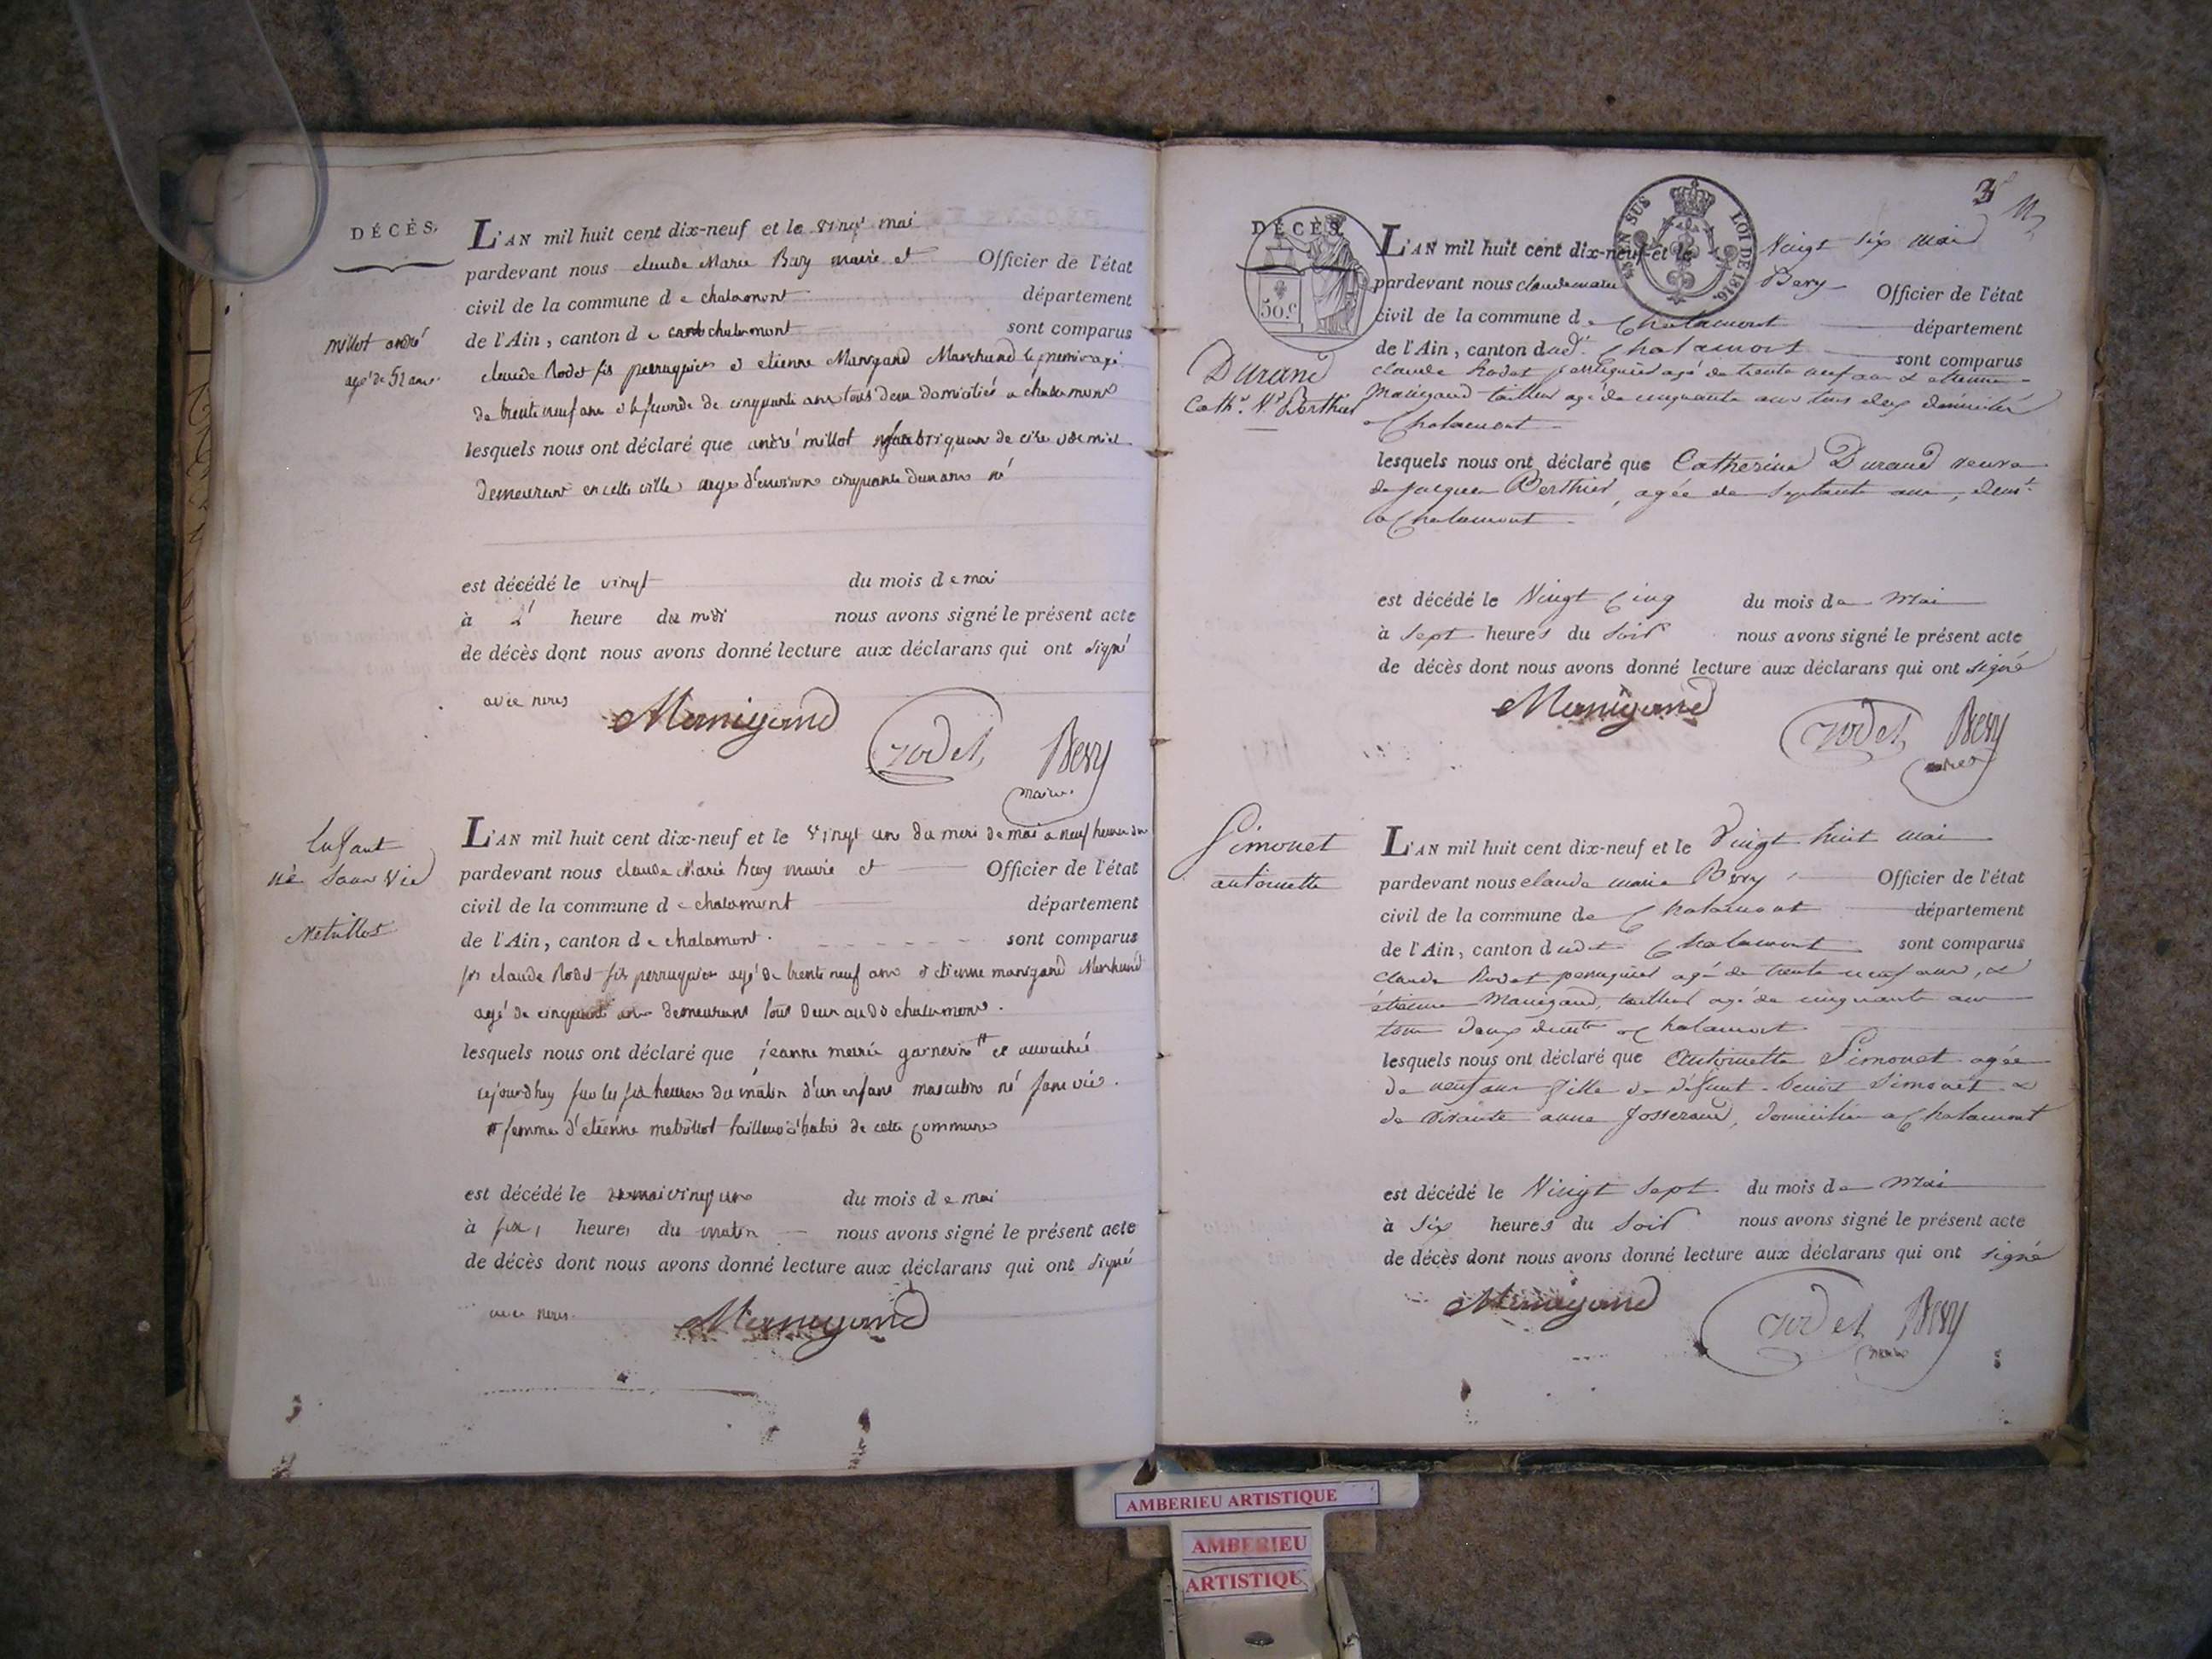 DÉCÈS.
L'AN mil huit cent dix-neuf et le vingt mai
pardevant nous claude Marie Bery maire et Officier de l'état
civil de la commune de chalamont département
de l'Ain, canton de chalamont sont comparus
millot andré
agé de 52 ans
claude Rodet fils perruquier et etienne Manigand Marchand le premier agé
de trente neuf ans et le seconde de cinquante ans tous deux domiciliés a chalamont
lesquels nous ont déclaré que andré millot fabriquan de cire et de miel
demeurant en cette ville agé d'environ cinquante deux ans né
est décédé le vingt du mois de mai
à heure du midi nous avons signé le présent acte
de décès dont nous avons donné lecture aux déclarans qui ont signé
avec nous
Manigand Rodet Bery
maire
Enfant
né sans vie
Metallot
L'AN mil huit cent dix-neuf et le vingt un du mois de mai a neuf heures du
pardevant nous claude Marie bery maire et Officier de l'état
civil de la commune de chalamont département
de l'Ain, canton de chalamont. sont comparus
claude Rodet fils perruquier agé de trente neuf ans et etienne manigand Marchand
agé de cinquante ans demeurans tous deux audit chalamont.
lesquels nous ont déclaré que jeanne marie garnerin # est accouchée
cejourd'huy sur les six heures du matin d'un enfant masculin né sans vie.
# femme d'etiénne metallot tailleur d'habis de cette commune
est décédé le vingt un du mois de mai
à six heures du matin nous avons signé le présent acte
de décès dont nous avons donné lecture aux déclarans qui ont signé
avec nous.
Manigand
3
DÉCÈS.
50.c
EN SUS
LOI DE 1816.
L'AN mil huit cent dix-neuf et le Vingt six mai
pardevant nous claude marie Bery Officier de l'état
civil de la commune de Chalamont département
de l'Ain, canton dud.t Chalamont sont comparus
Durand
Cath.e V.e Berthier
claude Rodet perruquier agé de trente neuf ans & etienne
Manigand tailleur agé de cinquante ans tous deux domiciliés
a Chalamont
lesquels nous ont déclaré que Catherine Durand veuve
de Jacques Berthier, agée de septante ans, dem.t
a Chalamont
est décédé le Vingt Cinq du mois de Mai
à sept heures du soir nous avons signé le présent acte
de décès dont nous avons donné lecture aux déclarans qui ont signé
Manigand Rodet Bery
maire
Simonet
antoinette
L'AN mil huit cent dix-neuf et le Vingt huit mai
pardevant nous claude marie Bery Officier de l'état
civil de la commune de Chalamont département
de l'Ain, canton dudt Chalamont sont comparus
Claude Rodet perruquier agé de trente neuf ans, &
étienne Manigand, tailleur agé de cinquante ans
tous deux demt a Chalamont
lesquels nous ont déclaré que Antoinette Simonet agée
de neuf ans fille de défunt benoit Simonet &
de vivante anne Josserand, domiciliée a Chalamont
est décédé le Vingt Sept du mois de Mai
à six heures du soir nous avons signé le présent acte
de décès dont nous avons donné lecture aux déclarans qui ont signé
Manigand Rodet Bery
maire
AMBERIEU ARTISTIQUE
AMBERIEU
ARTISTIQU